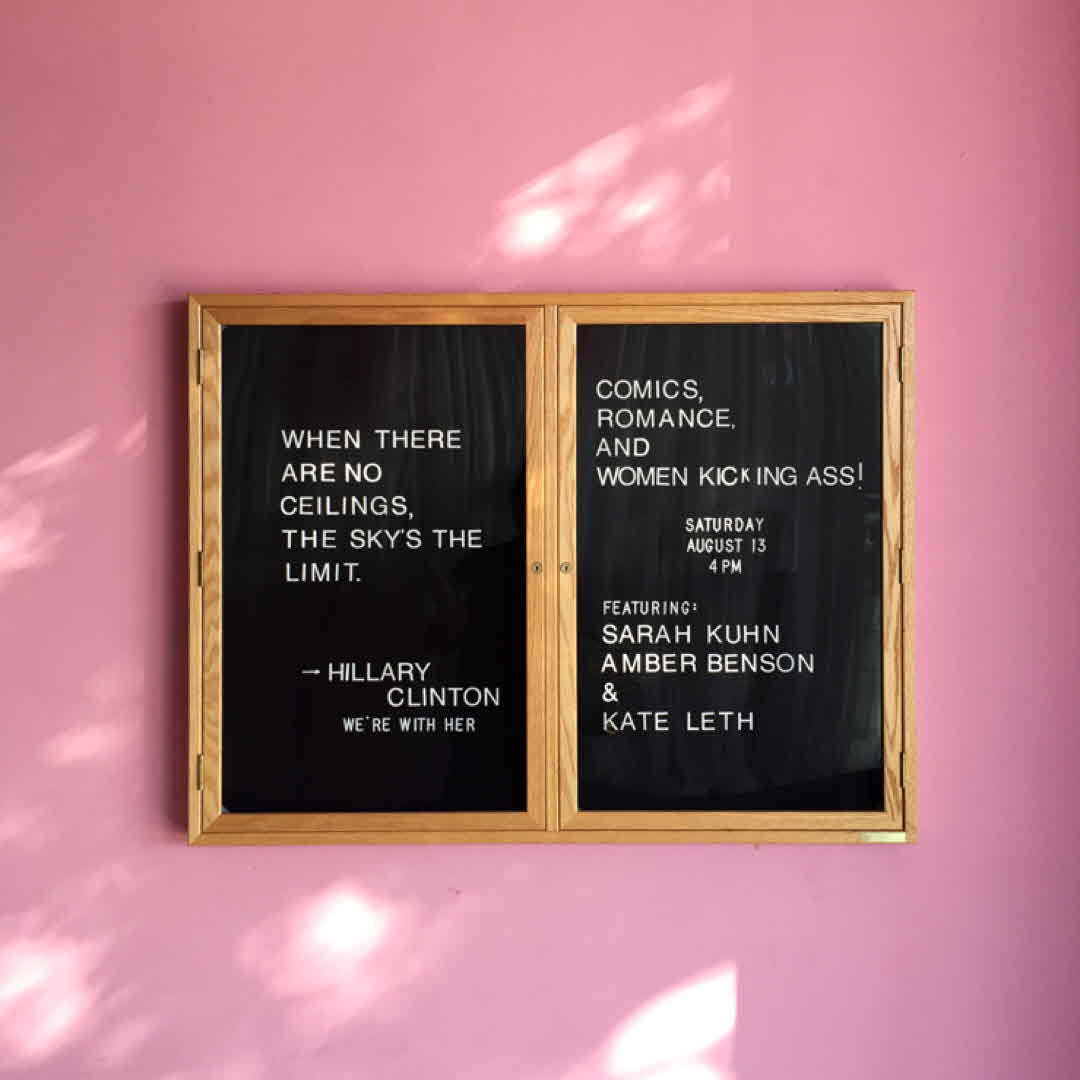 WHEN THERE
ARE NO
CEILINGS,
THE SKY'S THE
LIMIT.
→HILLARY
CLINTON
WE'RE WITH HER
COMICS,
ROMANCE,
AND
WOMEN KICKING ASS!
SATURDAY
AUGUST 13
4 PM
FEATURING:
SARAH KUHN
AMBER BENSON
&
KATE LETH